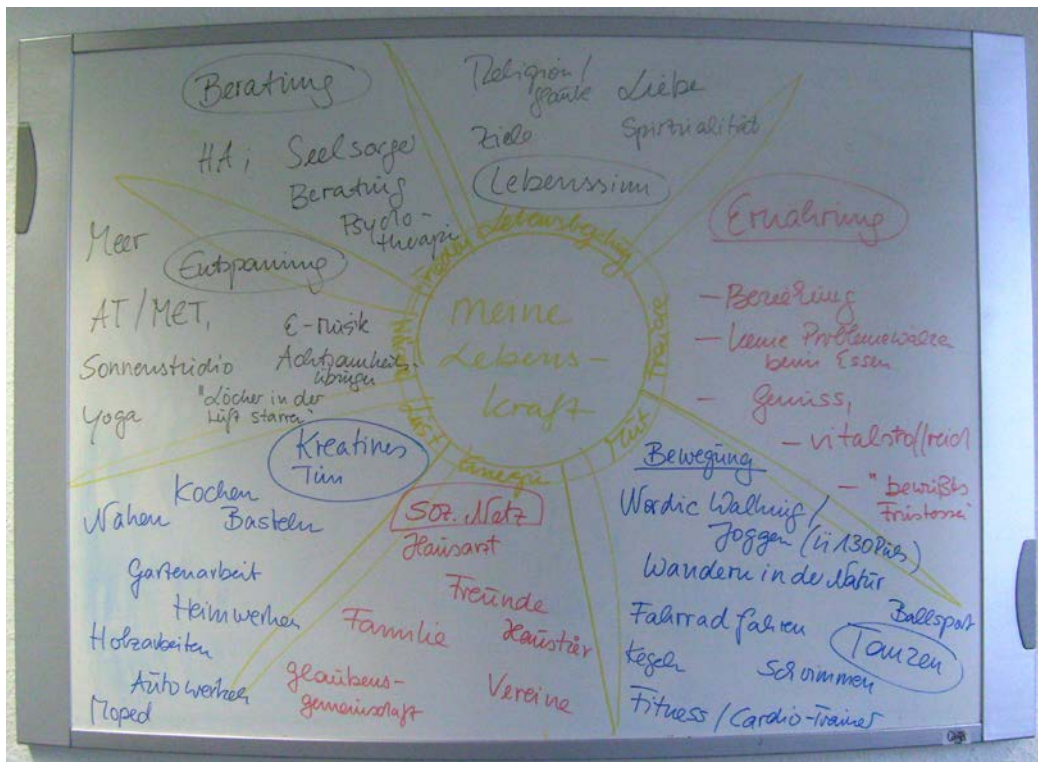 Beratung
HA, Seelsorge
Beratung
Psycho-
therapie
Religion /
Glaube
Liebe
Ziele
Spiritualität
Lebenssinn
Ernährung
- Beziehung
- keine Problemewälzen
beim Essen
- Genuss,
- vitalstoffreich
- "bewußtes
Meer
Entspannung
AT/MET,
E-Musik
Sonnenstudio
Achtsamheits-
übungen
Yoga
"Löcher in der
Luft starren"
Frieden
Lebens
Trauer
Mut
Energie
Lust
meine
Lebens-
kraft
Kreatives
Tun
Kochen
Nähen
Basteln
Gartenarbeit
Heimwerken
Holzarbeiten
Autowerken
Moped
Soz. Netz
Hausarzt
Freunde
Familie
Haustier
Glaubens-
gemeinschaft
Vereine
Bewegung
Nordic Walking /
Joggen (ü 130 Puls)
Wandern in der Natur
Fahrrad fahren
Ballsport
Tanzen
Kegeln
Schwimmen
Fitness / Cardio-Trainer